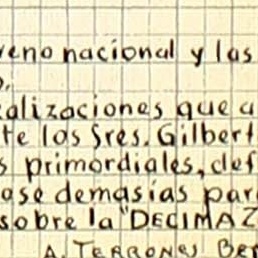 reno nacional y las
o.
alizaciones que a
te los Sres. Gilbert
s primordiales, def
ose demasías par
sobre la "DECIMAZ
A. TERRONES BE